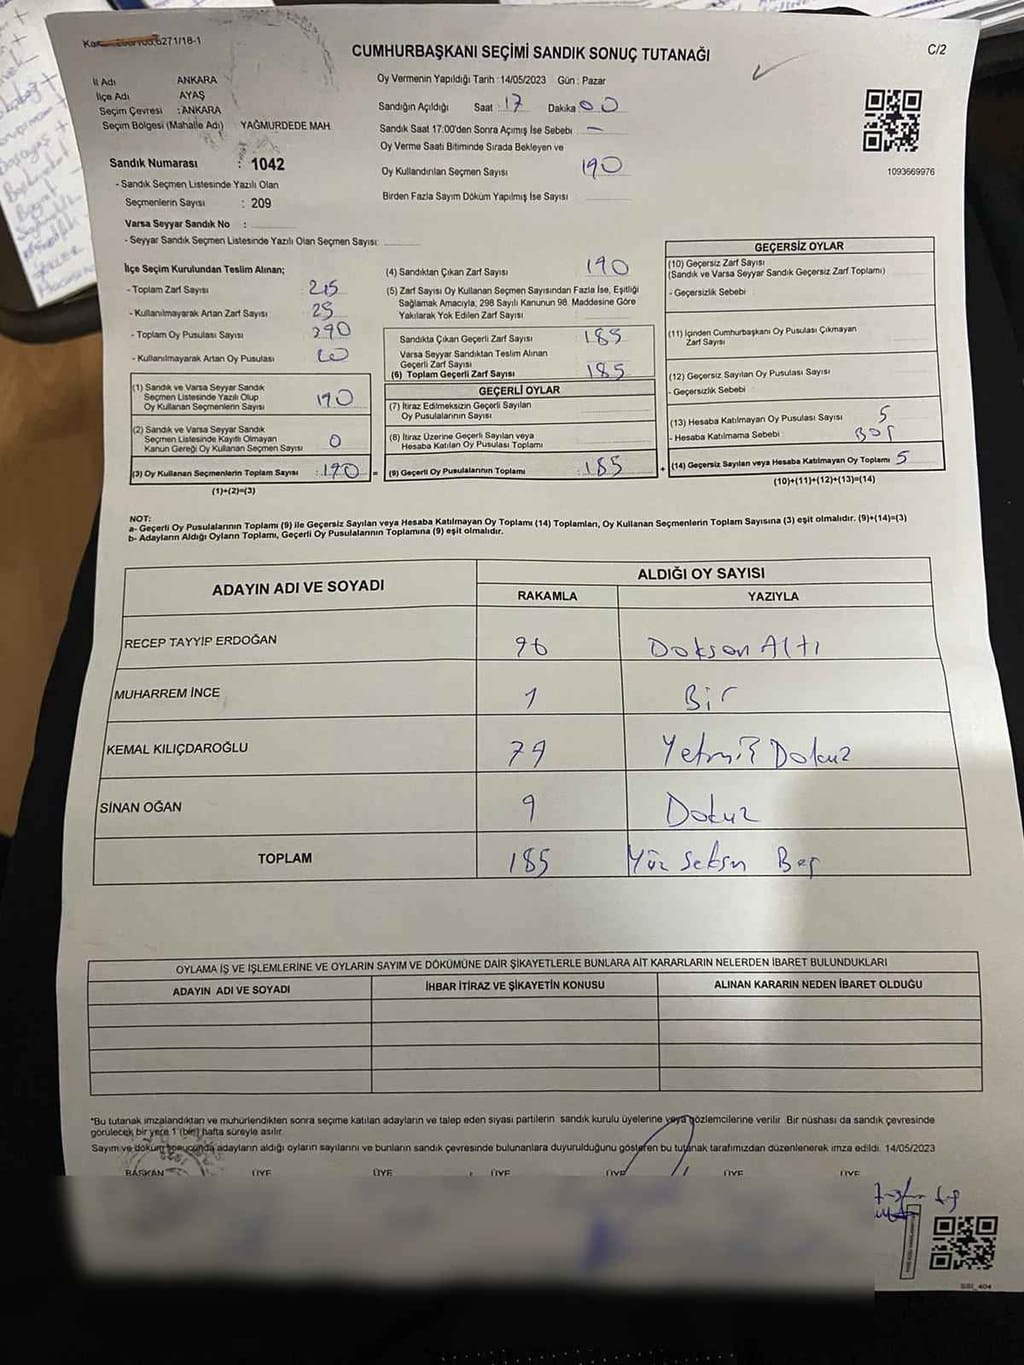 6271/18-1
CUMHURBAŞKANI SEÇİMİ SANDIK SONUÇ TUTANAĞI
C/2
İl Adı ANKARA
İlçe Adı AYAŞ
Seçim Çevresi : ANKARA
Seçim Bölgesi (Mahalle Adı) YAĞMURDEDE MAH.
Oy Vermenin Yapıldığı Tarih : 14/05/2023 Gün : Pazar
Sandığın Açıldığı Saat : 17 Dakika 00
Sandık Saat 17:00'den Sonra Açımış İse Sebebi : -
Oy Verme Saati Bitiminde Sırada Bekleyen ve
Oy Kullandırılan Seçmen Sayısı 190
Birden Fazla Sayım Döküm Yapılmış İse Sayısı
1093669976
Sandık Numarası : 1042
- Sandık Seçmen Listesinde Yazılı Olan
Seçmenlerin Sayısı : 209
Varsa Seyyar Sandık No :
- Seyyar Sandık Seçmen Listesinde Yazılı Olan Seçmen Sayısı:
İlçe Seçim Kurulundan Teslim Alınan;
- Toplam Zarf Sayısı : 215
- Kullanılmayarak Artan Zarf Sayısı : 25
- Toplam Oy Pusulası Sayısı
- Kullanılmayarak Artan Oy Pusulası :
(1) Sandık ve Varsa Seyyar Sandık
Seçmen Listesinde Yazılı Olup
Oy Kullanan Seçmenlerin Sayısı 190
(2) Sandık ve Varsa Seyyar Sandık
Seçmen Listesinde Kayıtlı Olmayan
Kanun Gereği Oy Kullanan Seçmen Sayısı 0
(3) Oy Kullanan Seçmenlerin Toplam Sayısı : 190 =
(1)+(2)=(3)
(4) Sandıktan Çıkan Zarf Sayısı 190
(5) Zarf Sayısı Oy Kullanan Seçmen Sayısından Fazla İse, Eşitliği
Sağlamak Amacıyla, 298 Sayılı Kanunun 98. Maddesine Göre
Yakılarak Yok Edilen Zarf Sayısı
Sandıkta Çıkan Geçerli Zarf Sayısı 185
Varsa Seyyar Sandıktan Teslim Alınan
Geçerli Zarf Sayısı
(6) Toplam Geçerli Zarf Sayısı 185
GEÇERLİ OYLAR
(7) İtiraz Edilmeksizin Geçerli Sayılan
Oy Pusulalarının Sayısı
(8) İtiraz Üzerine Geçerli Sayılan veya
Hesaba Katılan Oy Pusulası Toplamı
(9) Geçerli Oy Pusulalarının Toplamı 185 +
GEÇERSİZ OYLAR
(10) Geçersiz Zarf Sayısı
(Sandık ve Varsa Seyyar Sandık Geçersiz Zarf Toplamı)
- Geçersizlik Sebebi
(11) İçinden Cumhurbaşkanı Oy Pusulası Çıkmayan
Zarf Sayısı
(12) Geçersiz Sayılan Oy Pusulası Sayısı
- Geçersizlik Sebebi
(13) Hesaba Katılmayan Oy Pusulası Sayısı 5
- Hesaba Katılmama Sebebi BOŞ
(14) Geçersiz Sayılan veya Hesaba Katılmayan Oy Toplamı 5
(10)+(11)+(12)+(13)=(14)
NOT:
a- Geçerli Oy Pusulalarının Toplamı (9) ile Geçersiz Sayılan veya Hesaba Katılmayan Oy Toplamı (14) Toplamları, Oy Kullanan Seçmenlerin Toplam Sayısına (3) eşit olmalıdır. (9)+(14)=(3)
b- Adayların Aldığı Oyların Toplamı, Geçerli Oy Pusulalarının Toplamına (9) eşit olmalıdır.
ADAYIN ADI VE SOYADI
ALDIĞI OY SAYISI
RAKAMLA YAZIYLA
RECEP TAYYİP ERDOĞAN 96 Doksan Altı
MUHARREM İNCE 1 Bir
KEMAL KILIÇDAROĞLU 79 Yetmiş Dokuz
SİNAN OĞAN 9 Dokuz
TOPLAM 185 Yüz Seksen Beş
OYLAMA İŞ VE İŞLEMLERİNE VE OYLARIN SAYIM VE DÖKÜMÜNE DAİR ŞİKAYETLERLE BUNLARA AİT KARARLARIN NELERDEN İBARET BULUNDUKLARI
ADAYIN ADI VE SOYADI İHBAR İTİRAZ VE ŞİKAYETİN KONUSU ALINAN KARARIN NEDEN İBARET OLDUĞU
*Bu tutanak imzalandıktan ve mühürlendikten sonra seçime katılan adayların ve talep eden siyasi partilerin sandık kurulu üyelerine veya gözlemcilerine verilir. Bir nüshası da sandık çevresinde
görülecek bir yere 1 (bir) hafta süreyle asılır.
Sayım ve döküm sonucunda adayların aldığı oyların sayılarını ve bunların sandık çevresinde bulunanlara duyurulduğunu gösteren bu tutanak tarafımızdan düzenlenerek imza edildi. 14/05/2023
BAŞKAN ÜYE ÜYE ÜYE ÜYE ÜYE ÜYE
SSI_404